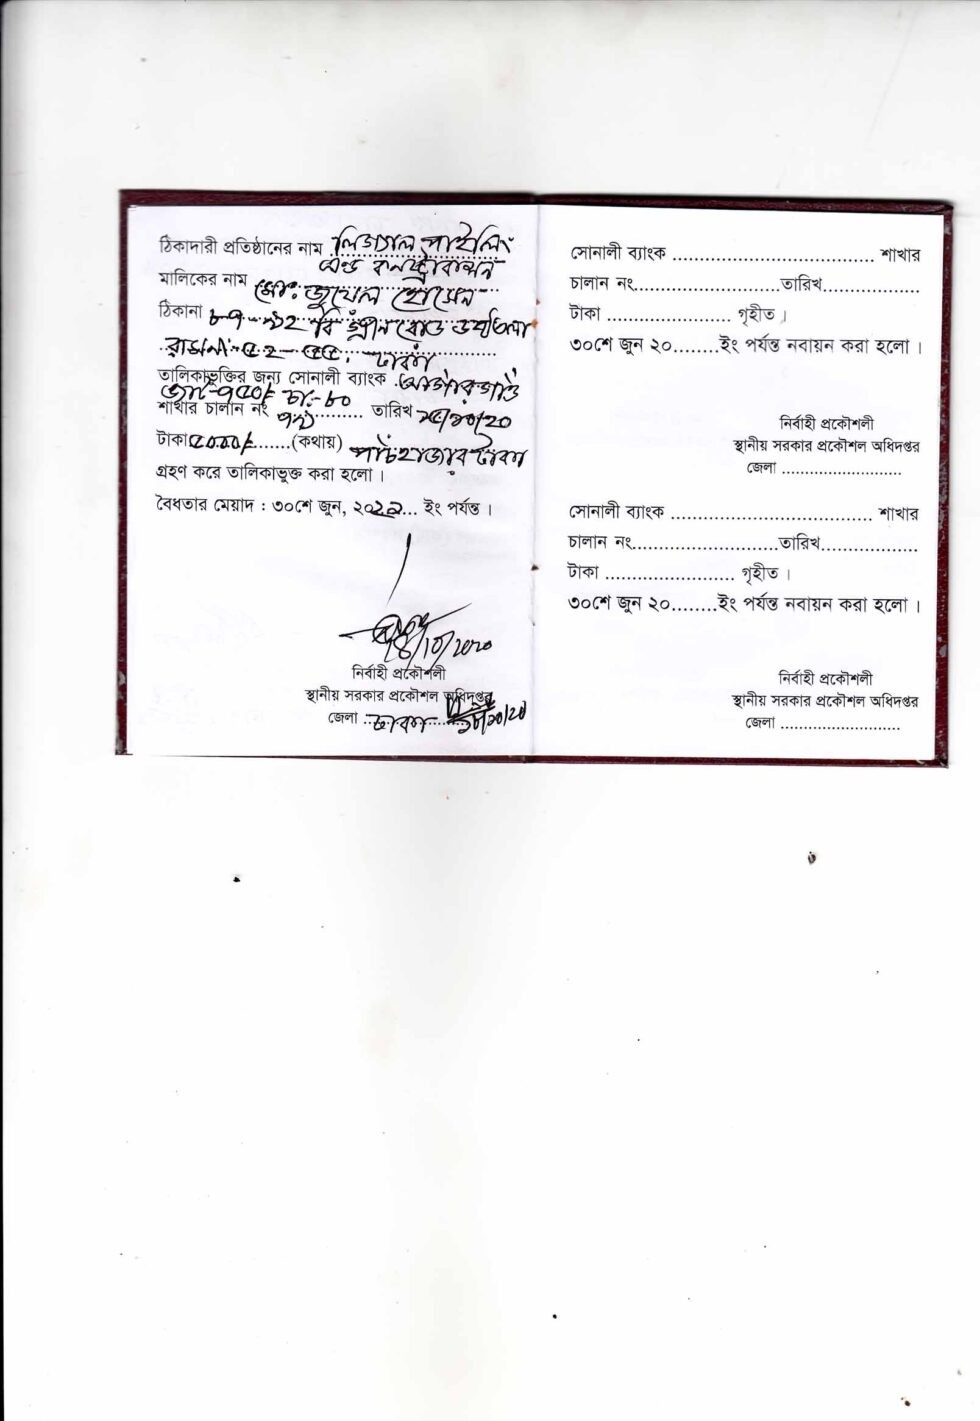 ঠিকাদারী প্রতিষ্ঠানের নাম লিগ্যাল পাইলিং
এন্ড কনস্ট্রাকশন
মালিকের নাম মোঃ জুয়েল হোসেন
ঠিকানা ৮৭ বি গ্রীন রোড
ঢাকা
তালিকাভুক্তির জন্য সোনালী ব্যাংক
শাখার চালান নং তারিখ ১৫/১০/২০
টাকা ৫০০০/- (কথায়) পাঁচহাজার টাকা
গ্রহণ করে তালিকাভুক্ত করা হলো।
বৈধতার মেয়াদ : ৩০শে জুন, ২০২১... ইং পর্যন্ত।
নির্বাহী প্রকৌশলী
স্থানীয় সরকার প্রকৌশল অধিদপ্তর
জেলা ..ঢাকা
সোনালী ব্যাংক .................................. শাখার
চালান নং...........................তারিখ..................
টাকা ....................... গৃহীত।
৩০শে জুন ২০........ইং পর্যন্ত নবায়ন করা হলো।
নির্বাহী প্রকৌশলী
স্থানীয় সরকার প্রকৌশল অধিদপ্তর
জেলা .......................
সোনালী ব্যাংক .................................. শাখার
চালান নং...........................তারিখ..................
টাকা ........................ গৃহীত।
৩০শে জুন ২০........ইং পর্যন্ত নবায়ন করা হলো।
নির্বাহী প্রকৌশলী
স্থানীয় সরকার প্রকৌশল অধিদপ্তর
জেলা .......................